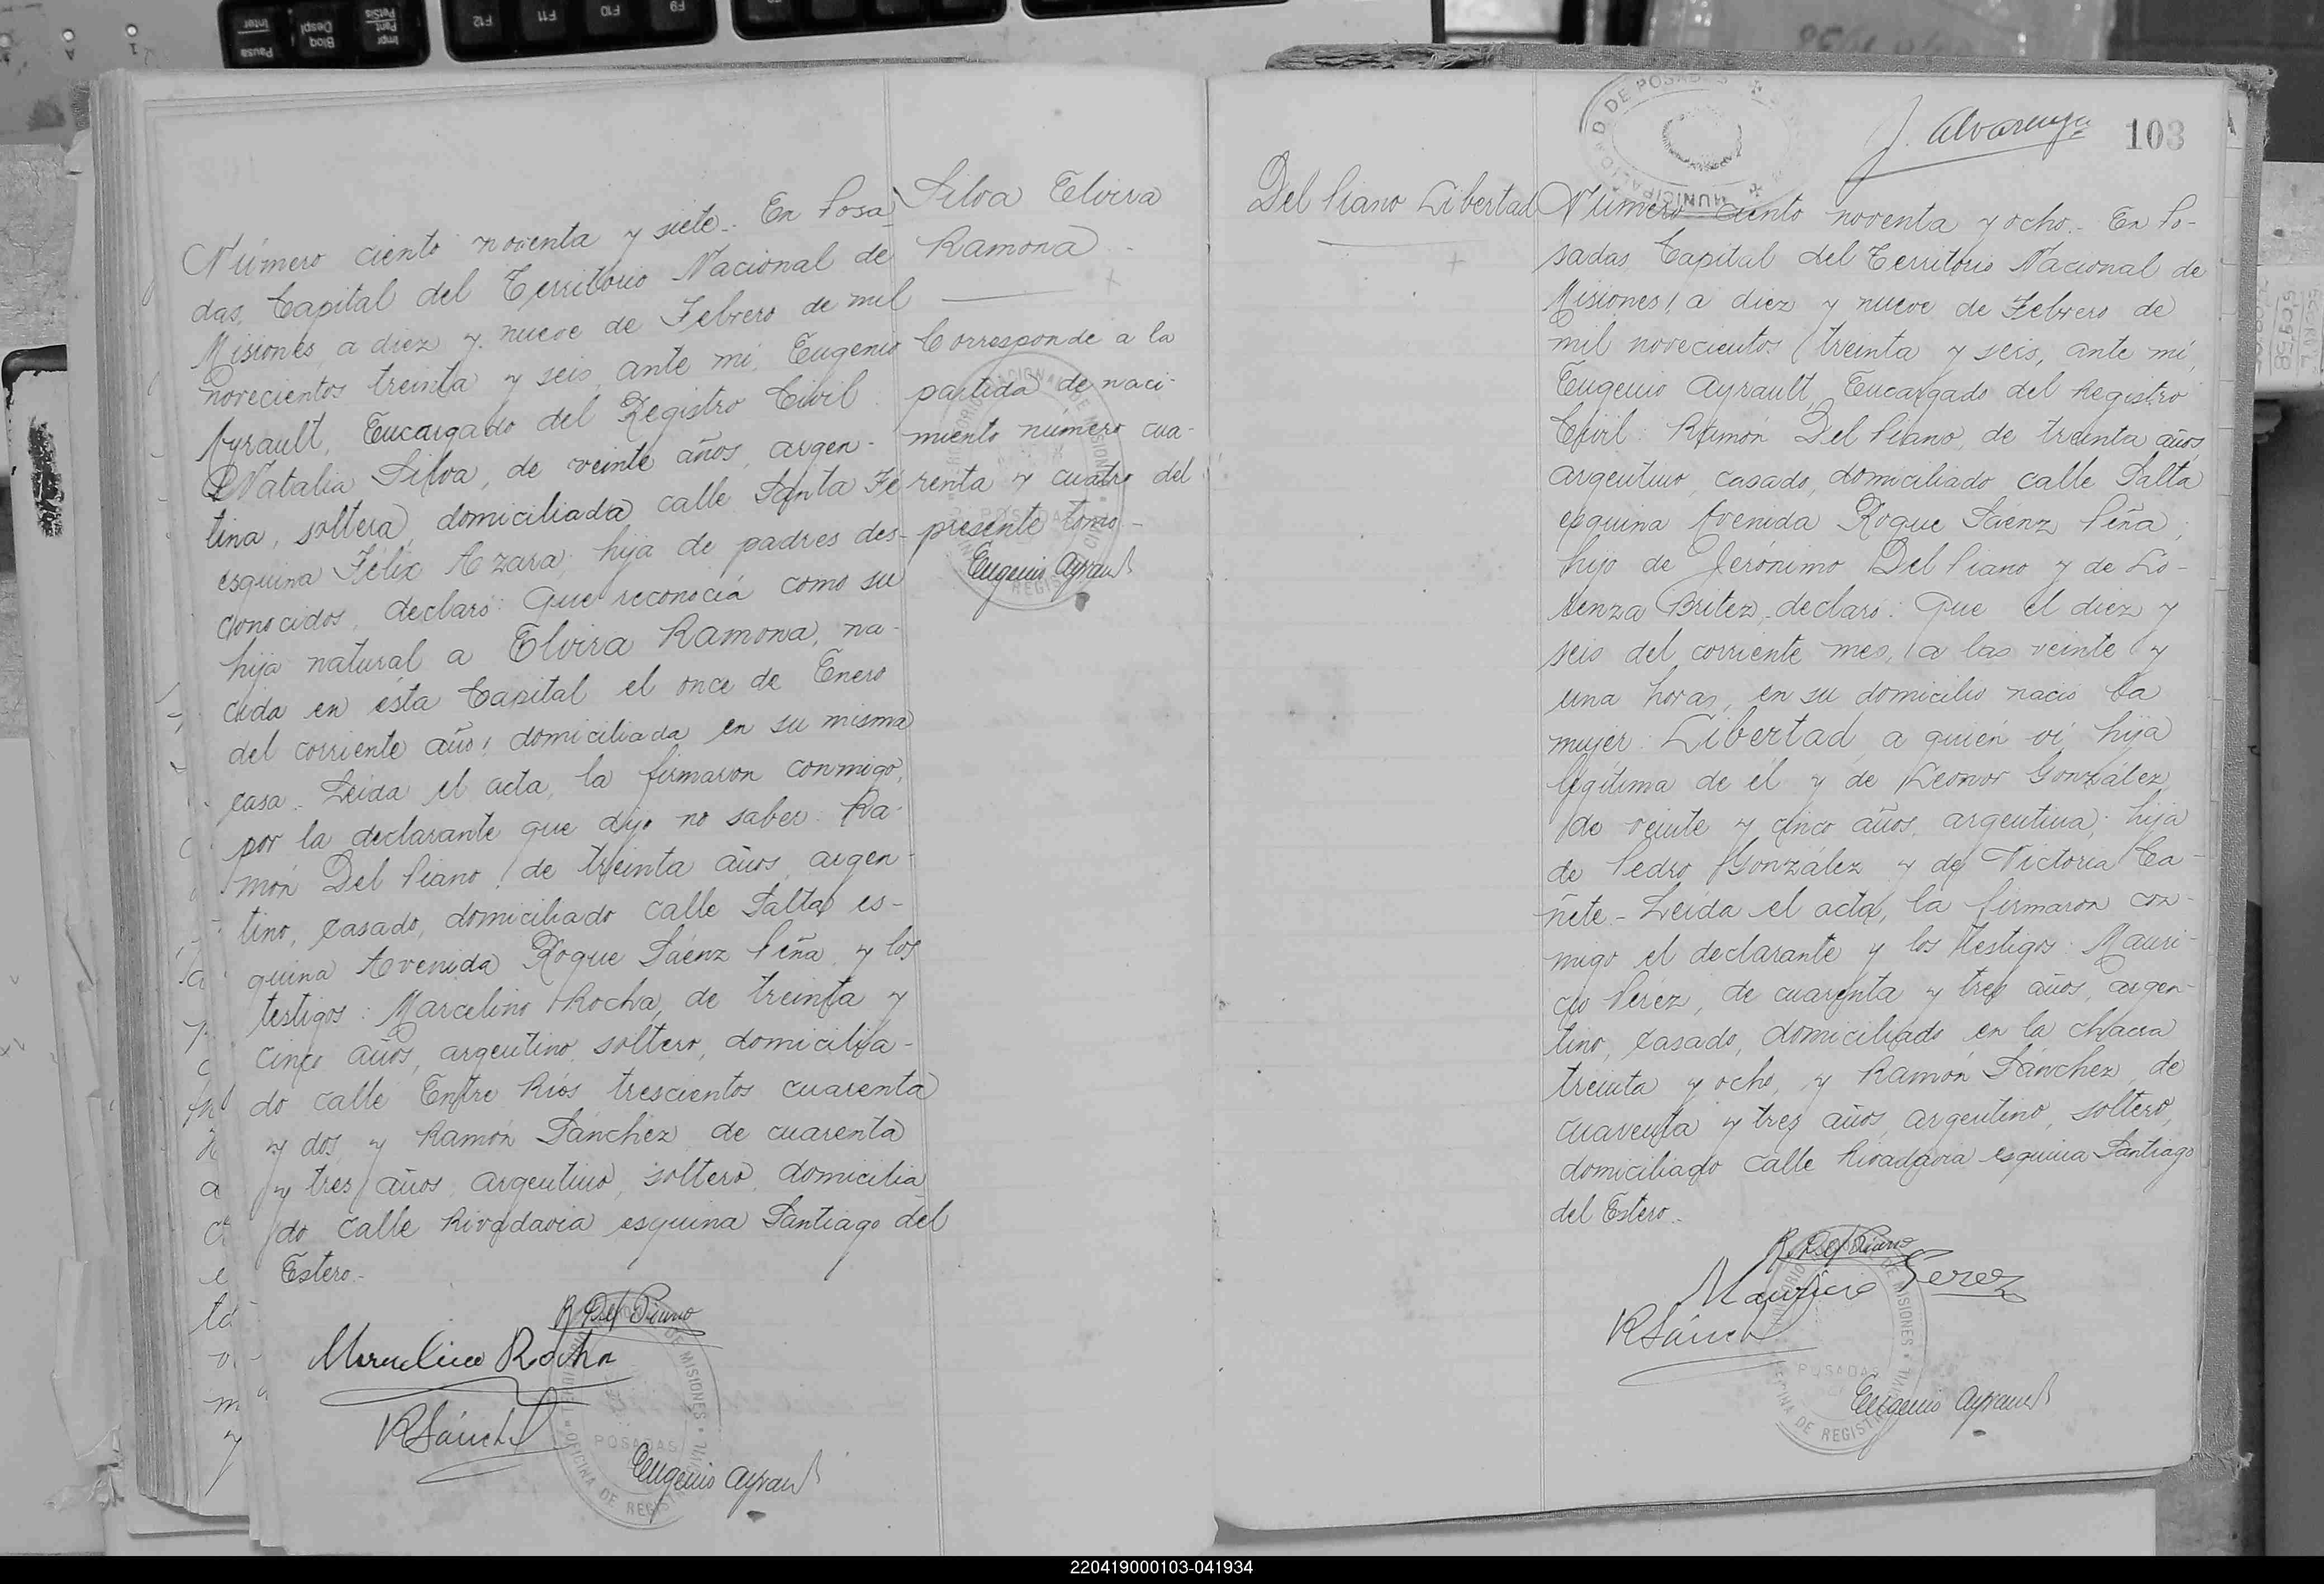 Número ciento noventa y siete.- En Posa
das, Capital del Territorio Nacional de
Misiones, a diez y nueve de Febrero de mil
novecientos treinta y seis, ante mí, Eugenio
Ayrault, Encargado del Registro Civil:
Natalia Silva, de veinte años, argen-
tina, soltera, domiciliada calle Santa Fé
esquina Félix Azara; hija de padres des-
conocidos, declaró: Que reconocía como su
hija natural a Elvira Ramona, na-
cida en ésta Capital el once de Enero
del corriente año; domiciliada en su misma
casa.- Leída el acta, la firmaron conmigo,
por la declarante que dijo no saber: Ra-
món Del Piano, de treinta años, argen-
tino, casado, domiciliado calle Salta es-
quina Avenida Roque Sáenz Peña, y los
testigos: Marcelino Rocha, de treinta y
cinco años, argentino, soltero, domicilia-
do calle Entre Ríos trescientos cuarenta
y dos, y Ramón Sánchez, de cuarenta
y tres años, argentino, soltero, domicilia
do calle Rivadavia esquina Santiago del
Estero.-
R. Del Piano
Marcelino Rocha
R Sánch
Eugenio Ayrault
TERRITORIO NACIONAL DE MISIONES
POSADAS
OFICINA DE REGISTRO CIVIL
Silva Elvira
Ramona.-
Corresponde a la
partida de naci-
miento número cua-
renta y cuatro del
presente tomo.-
Eugenio Ayrault
MUNICIPALIDAD DE POSADAS
J. Alvarenga
103
Del Piano Libertad
Número ciento noventa y ocho.- En Po-
sadas, Capital del Territorio Nacional de
Misiones, a diez y nueve de Febrero de
mil novecientos treinta y seis, ante mí,
Eugenio Ayrault, Encargado del Registro
Civil: Ramón Del Piano, de treinta años,
argentino, casado, domiciliado calle Salta
esquina Avenida Roque Sáenz Peña;
hijo de Jerónimo Del Piano y de Lo-
renza Britez, declaró: Que el diez y
seis del corriente mes, a las veinte y
una horas, en su domicilio nació la
mujer: Libertad, a quién ví, hija
legítima de él y de Leonor González,
de veinte y cinco años, argentina; hija
de Pedro González y de Victoria Ca-
ñete.- Leída el acta, la firmaron con-
migo el declarante y los testigos: Mauri-
cio Pérez, de cuarenta y tres años, argen-
tino, casado, domiciliado en la chacra
treinta y ocho, y Ramón Sánchez, de
cuarenta y tres años, argentino, soltero,
domiciliado calle Rivadavia esquina Santiago
del Estero.-
R. Del Piano
Mauricio Perez
R Sánch
Eugenio Ayrault
POSADAS
220419000103-041934